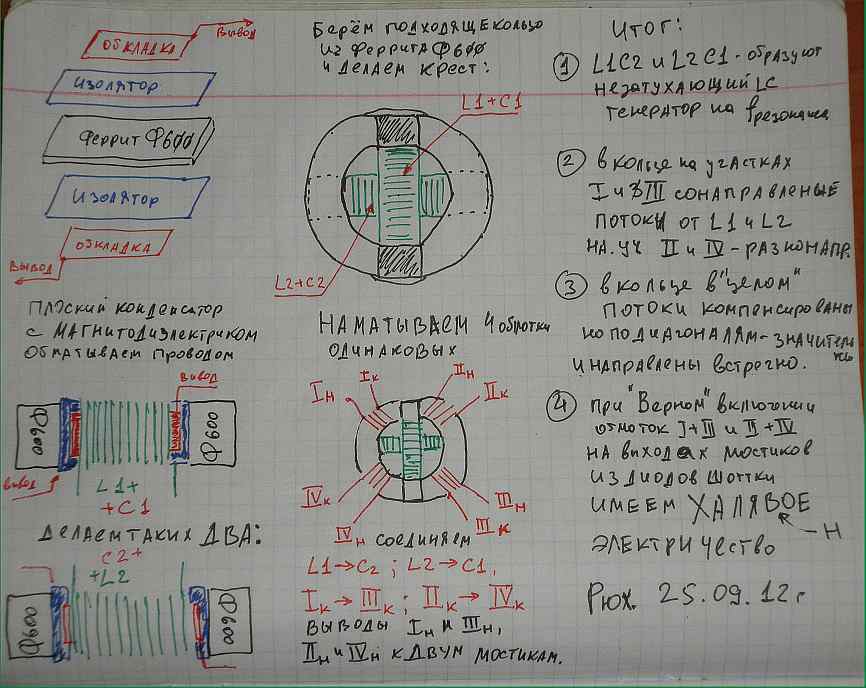 ОБКЛАДКА
ВЫВОД
ИЗОЛЯТОР
ФЕРРИТ Ф600
ИЗОЛЯТОР
ОБКЛАДКА
ВЫВОД
ПЛОСКИЙ КОНДЕНСАТОР
С МАГНИТОДИЭЛЕКТРИКОМ
ОБМАТЫВАЕМ ПРОВОДОМ
ВЫВОД
Ф600
Ф600
ВЫВОД
L1+
+C1
ДЕЛАЕМ ТАКИХ ДВА:
C2+
+L2
Ф600
Ф600
БЕРЁМ ПОДХОДЯЩЕ КОЛЬЦО
ИЗ ФЕРРИТА Ф600
И ДЕЛАЕМ КРЕСТ:
L1+C1
L2+C2
НАМАТЫВАЕМ 4 обмотки
ОДИНАКОВЫХ
Iн
Iк
IIн
IIк
IVк
IVн
IIIн
IIIк
СОЕДИНЯЕМ
L1→C2 ; L2→C1,
Iк→IIIк ; IIк→IVк
ВЫВОДЫ Iн и IIIн,
IIн и IVн к ДВУМ МОСТИКАМ.
ИТОГ:
1 L1C2 и L2C1 - образуют
незатухающий LC
генератор на fрезонанса
2 в кольце на участках
I и III сонаправленые
потоки от L1 и L2
на. уч II и IV - разнонапр.
3 в кольце в "целом"
потоки компенсированы
но по диагоналям-значительно
и направлены встречно.
4 при "верном" включении
обмоток I+III и II+IV
на выходах мостиков
из диодов Шоттки
имеем ХАЛЯВОЕ
-Н
ЭЛЕКТРИЧЕСТВО
Рюх. 25.09.12г